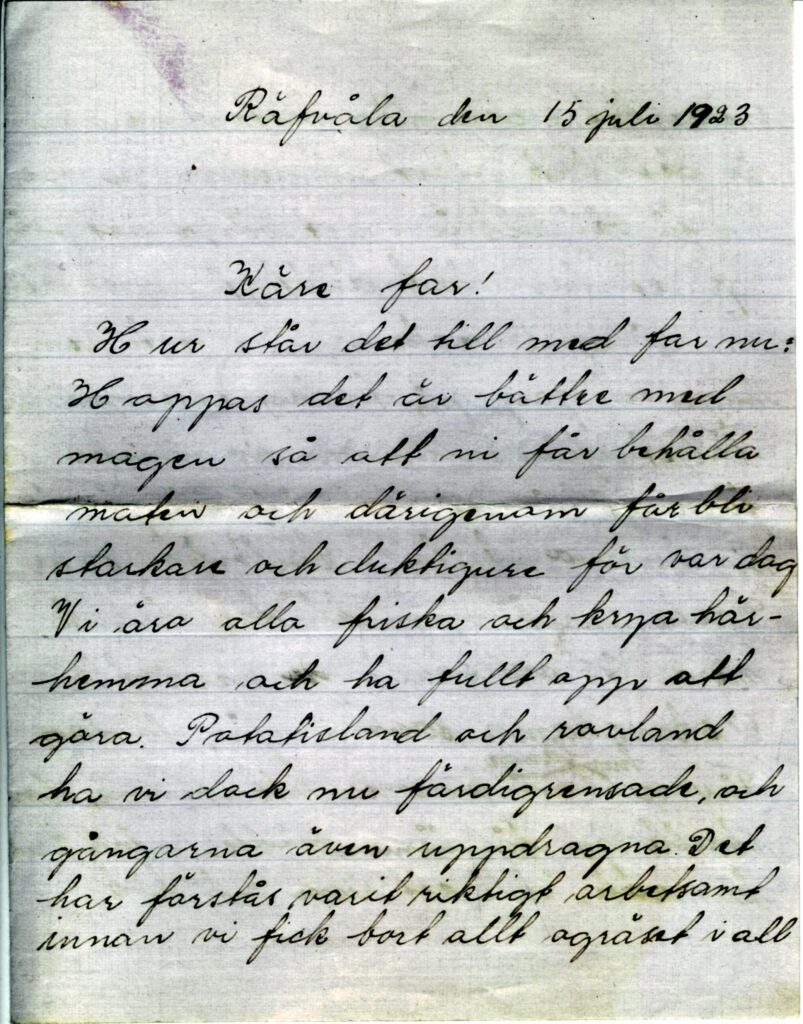 Räfvåla den 15 juli 1923
Käre far!
Hur står det till med far nu:
Hoppas det är bättre med
magen så att ni får behålla
maten och därigenom får bli
starkare och duktigare för var dag
Vi äro alla friska och krya här-
hemma och ha fullt opp att
göra. Potatisland och rovland
ha vi dock nu färdigrensade, och
gångarna även uppdragna. Det
har förstås varit riktigt arbetsamt
innan vi fick bort allt ogräset i all